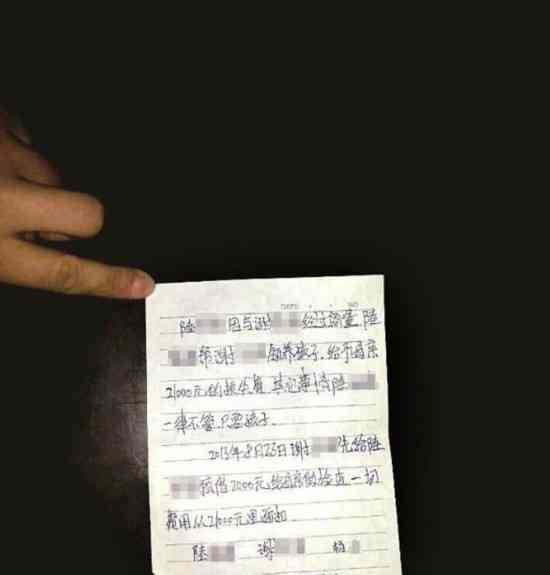 DATE . . NO
陆 因与谢 经过商量,陆
帮谢 领养孩子,给予母亲
21000元的抚养费,其它事情陆
一律不管,只要孩子.
2013年8月23日谢 先给陆
预借2000元,给母亲做检查一切
费用从21000元里面扣.
陆 谢 杨